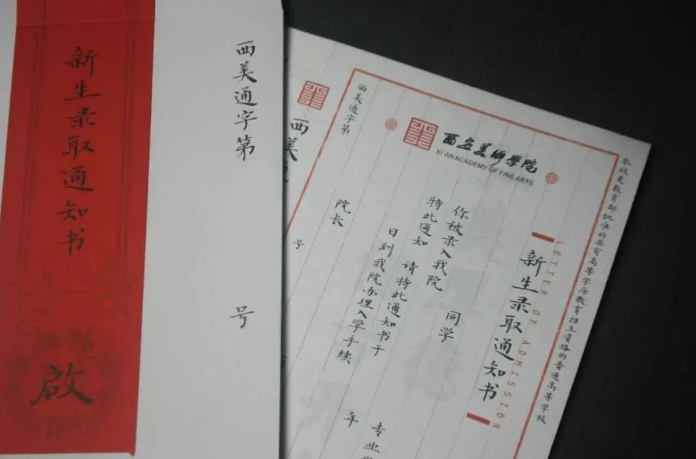 新生录取通知书
啟
西美通字第
号
西美
号
西美通字第
西安美术学院
XI'AN ACADEMY OF FINE ARTS
本校是教育部批准的具有高等学历教育招生资格的普通高等学校
LETTER OF ADMISSION
新生录取通知书
同学
你被录入我院
专业
特此通知 请持此通知书于
年
日到我院办理入学手续
院长